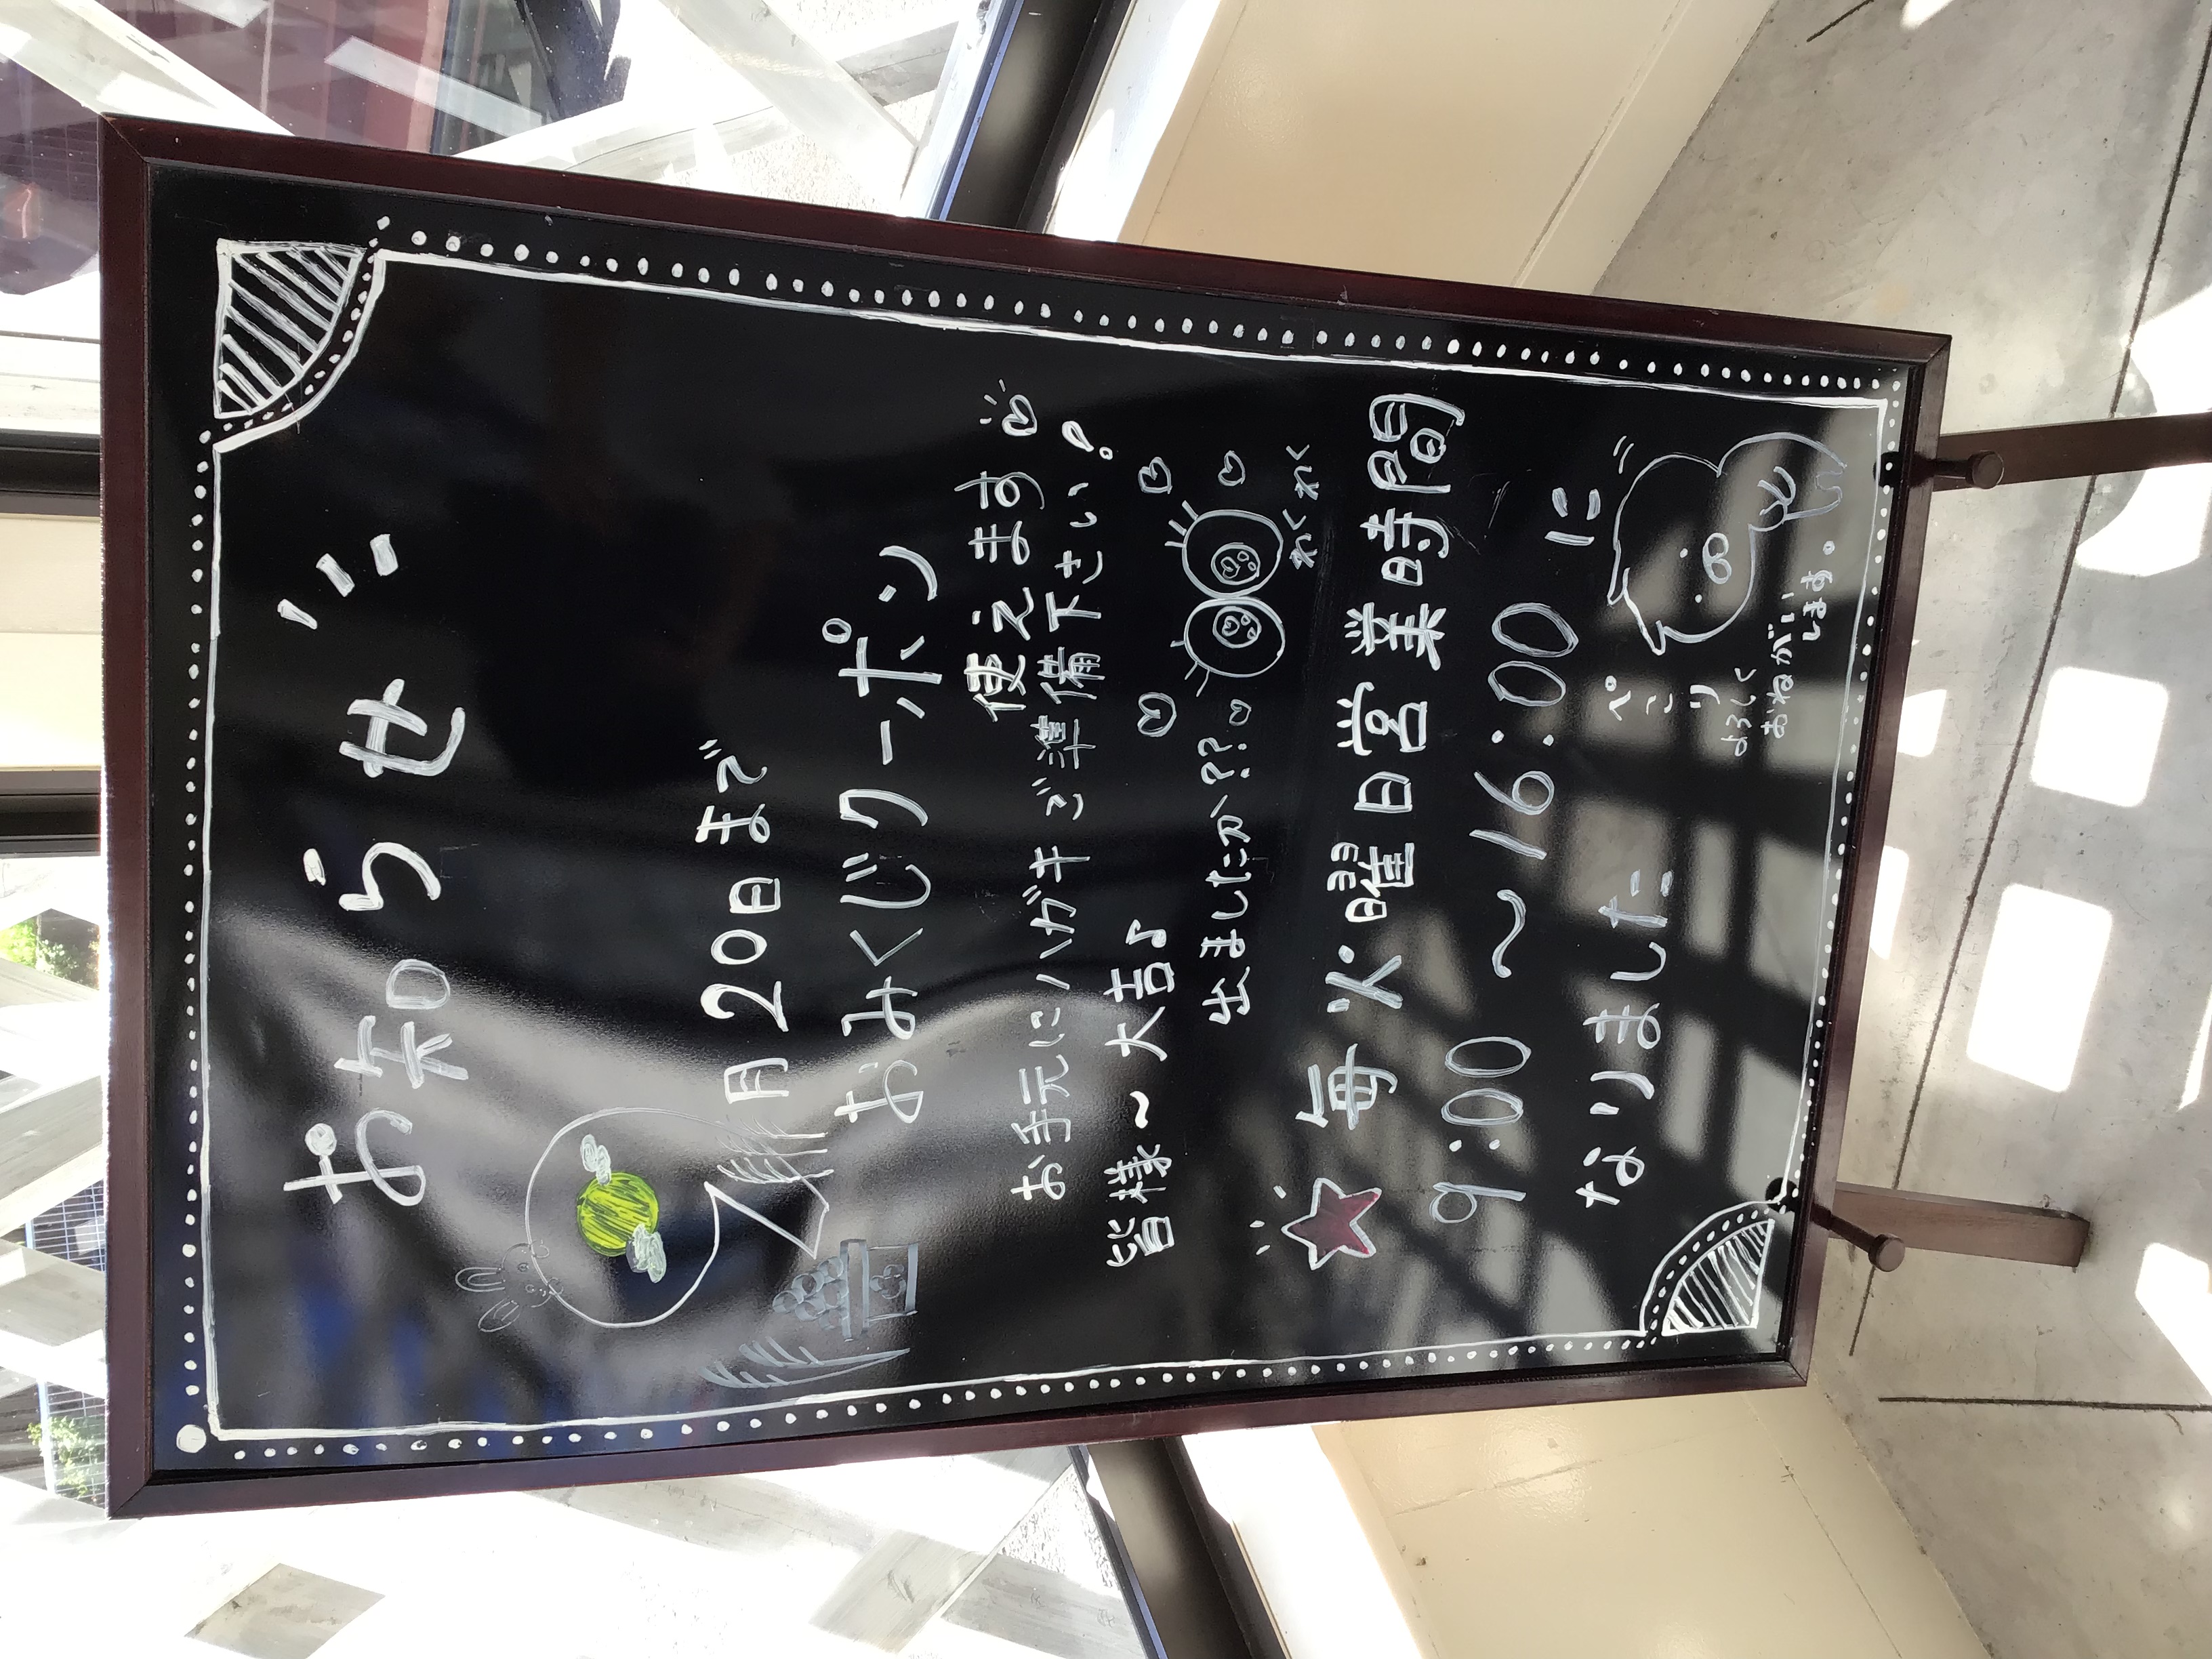 お知らせ
9月20日まで
おみくじクーポン
使えます
お手元にハガキご準備下さい!
皆様〜大吉♪
出ましたか??
わくわく
毎火曜日営業時間
9:00〜16:00に
なりました
ぺこり
よろしく
おねがい
します。